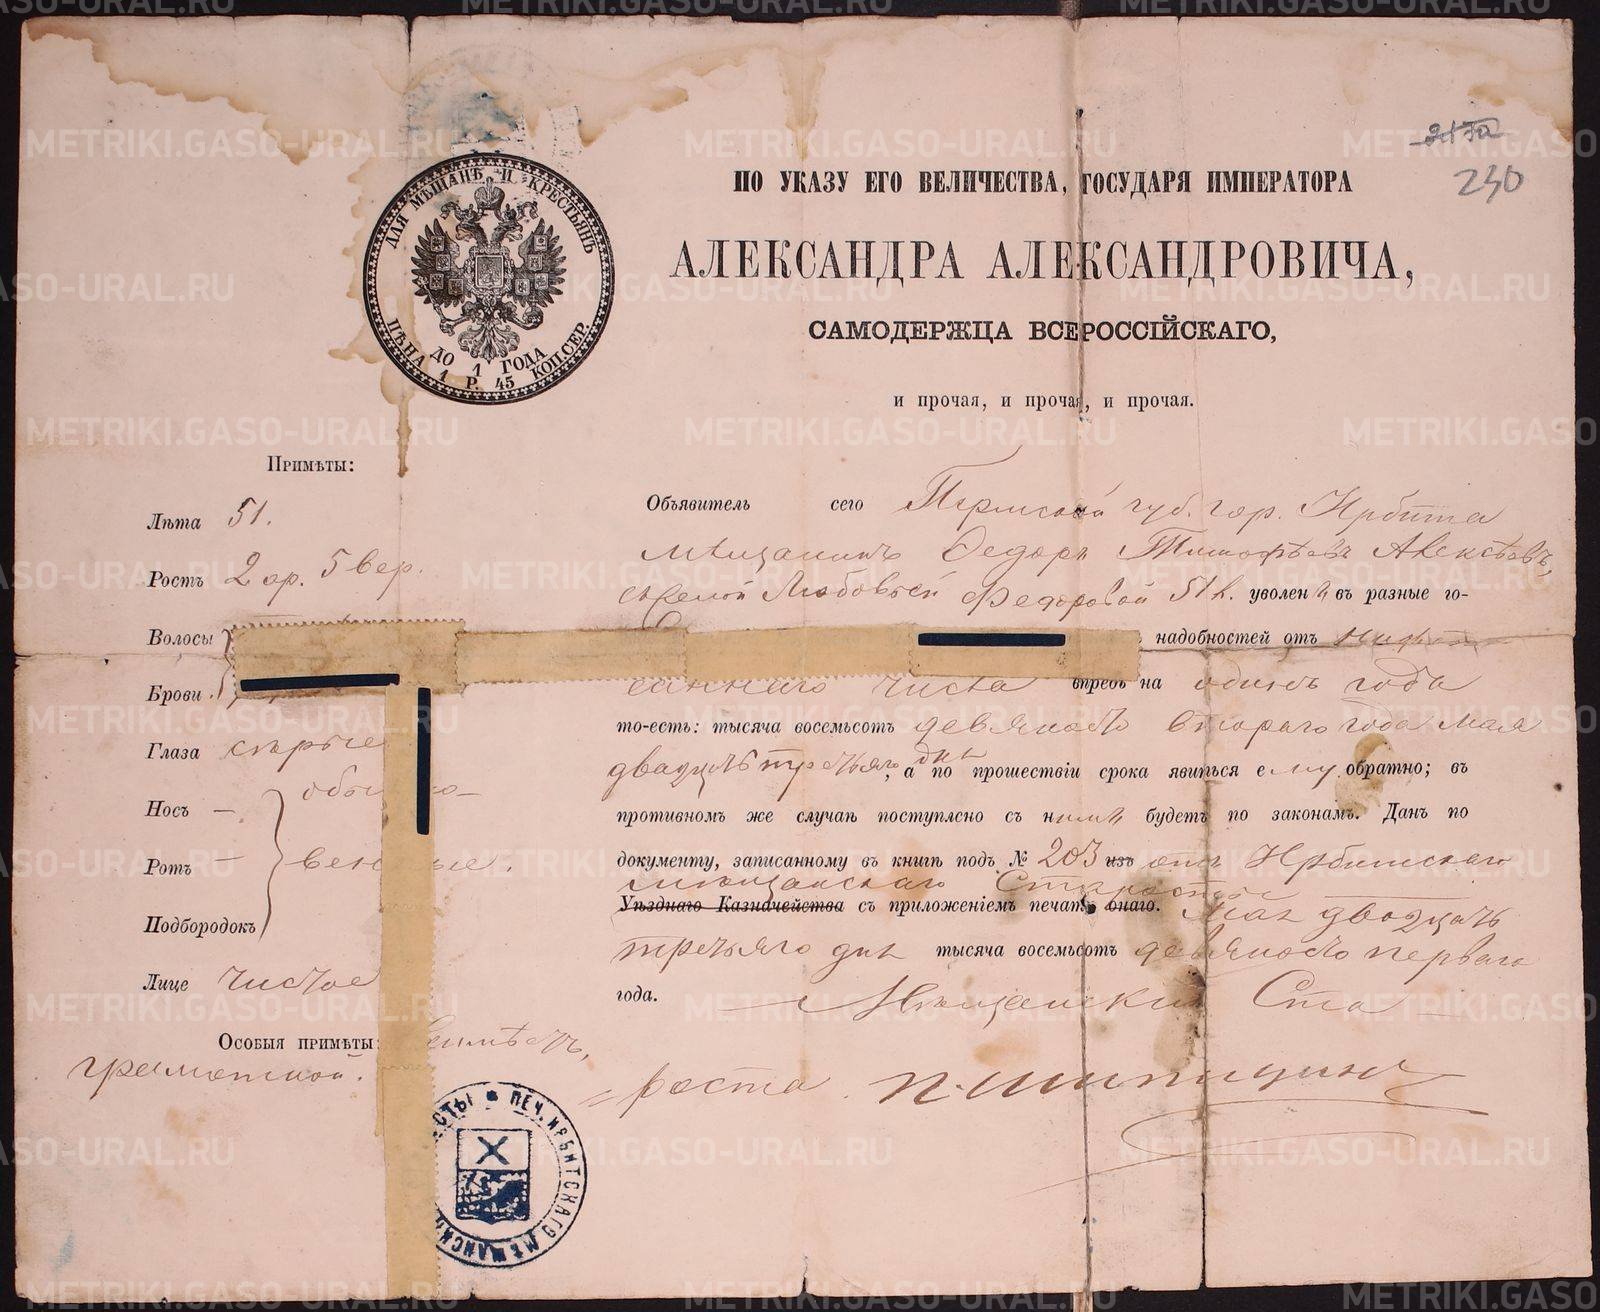 230
ДЛЯ МѢЩАНЪ И КРЕСТЬЯНЪ
ЦѢНА 1 Р. 45 КОП. СЕР.
ДО 1 ГОДА
ПО УКАЗУ ЕГО ВЕЛИЧЕСТВА, ГОСУДАРЯ ИМПЕРАТОРА
АЛЕКСАНДРА АЛЕКСАНДРОВИЧА,
САМОДЕРЖЦА ВСЕРОССІЙСКАГО,
и прочая, и прочая, и прочая.
Примѣты:
Лѣта 51.
Ростъ 2 ар. 5 вер.
Волосы
Брови
Глаза сѣрые
Носъ – обы о–
Ротъ – вен ые.
Подбородокъ
Лице чистое
Особыя примѣты:
грамотной.
Объявитель сего Пермской губ. гор. Ирбита
мѣщанинъ Федоръ Тимофѣевъ
женой Любовью Федоровой 51 л. уволен ы въ разные го-
надобностей отъ
саннаго числа впредь на одинъ годъ
то-есть: тысяча восемьсотъ девяносто втораго года мая
двадцать третьяго дня, а по прошествіи срока явиться ему обратно; въ
противномъ же случаѣ поступлено съ ними будетъ по законамъ. Данъ по
документу, записанному въ книгѣ подъ № 203 изъ отъ Ирбитскаго
мѣщанскаго Старосты
Уѣзднаго Казначейства съ приложеніемъ печати онаго. Мая двадцать
третьяго дня тысяча восемьсотъ девяносто перваго
года.
Мѣщанскій Ста
роста
ПЕЧ. ИРБИТСКАГО МѢЩАНСКА СТЫ
METRIKI.GASO-URAL.RU